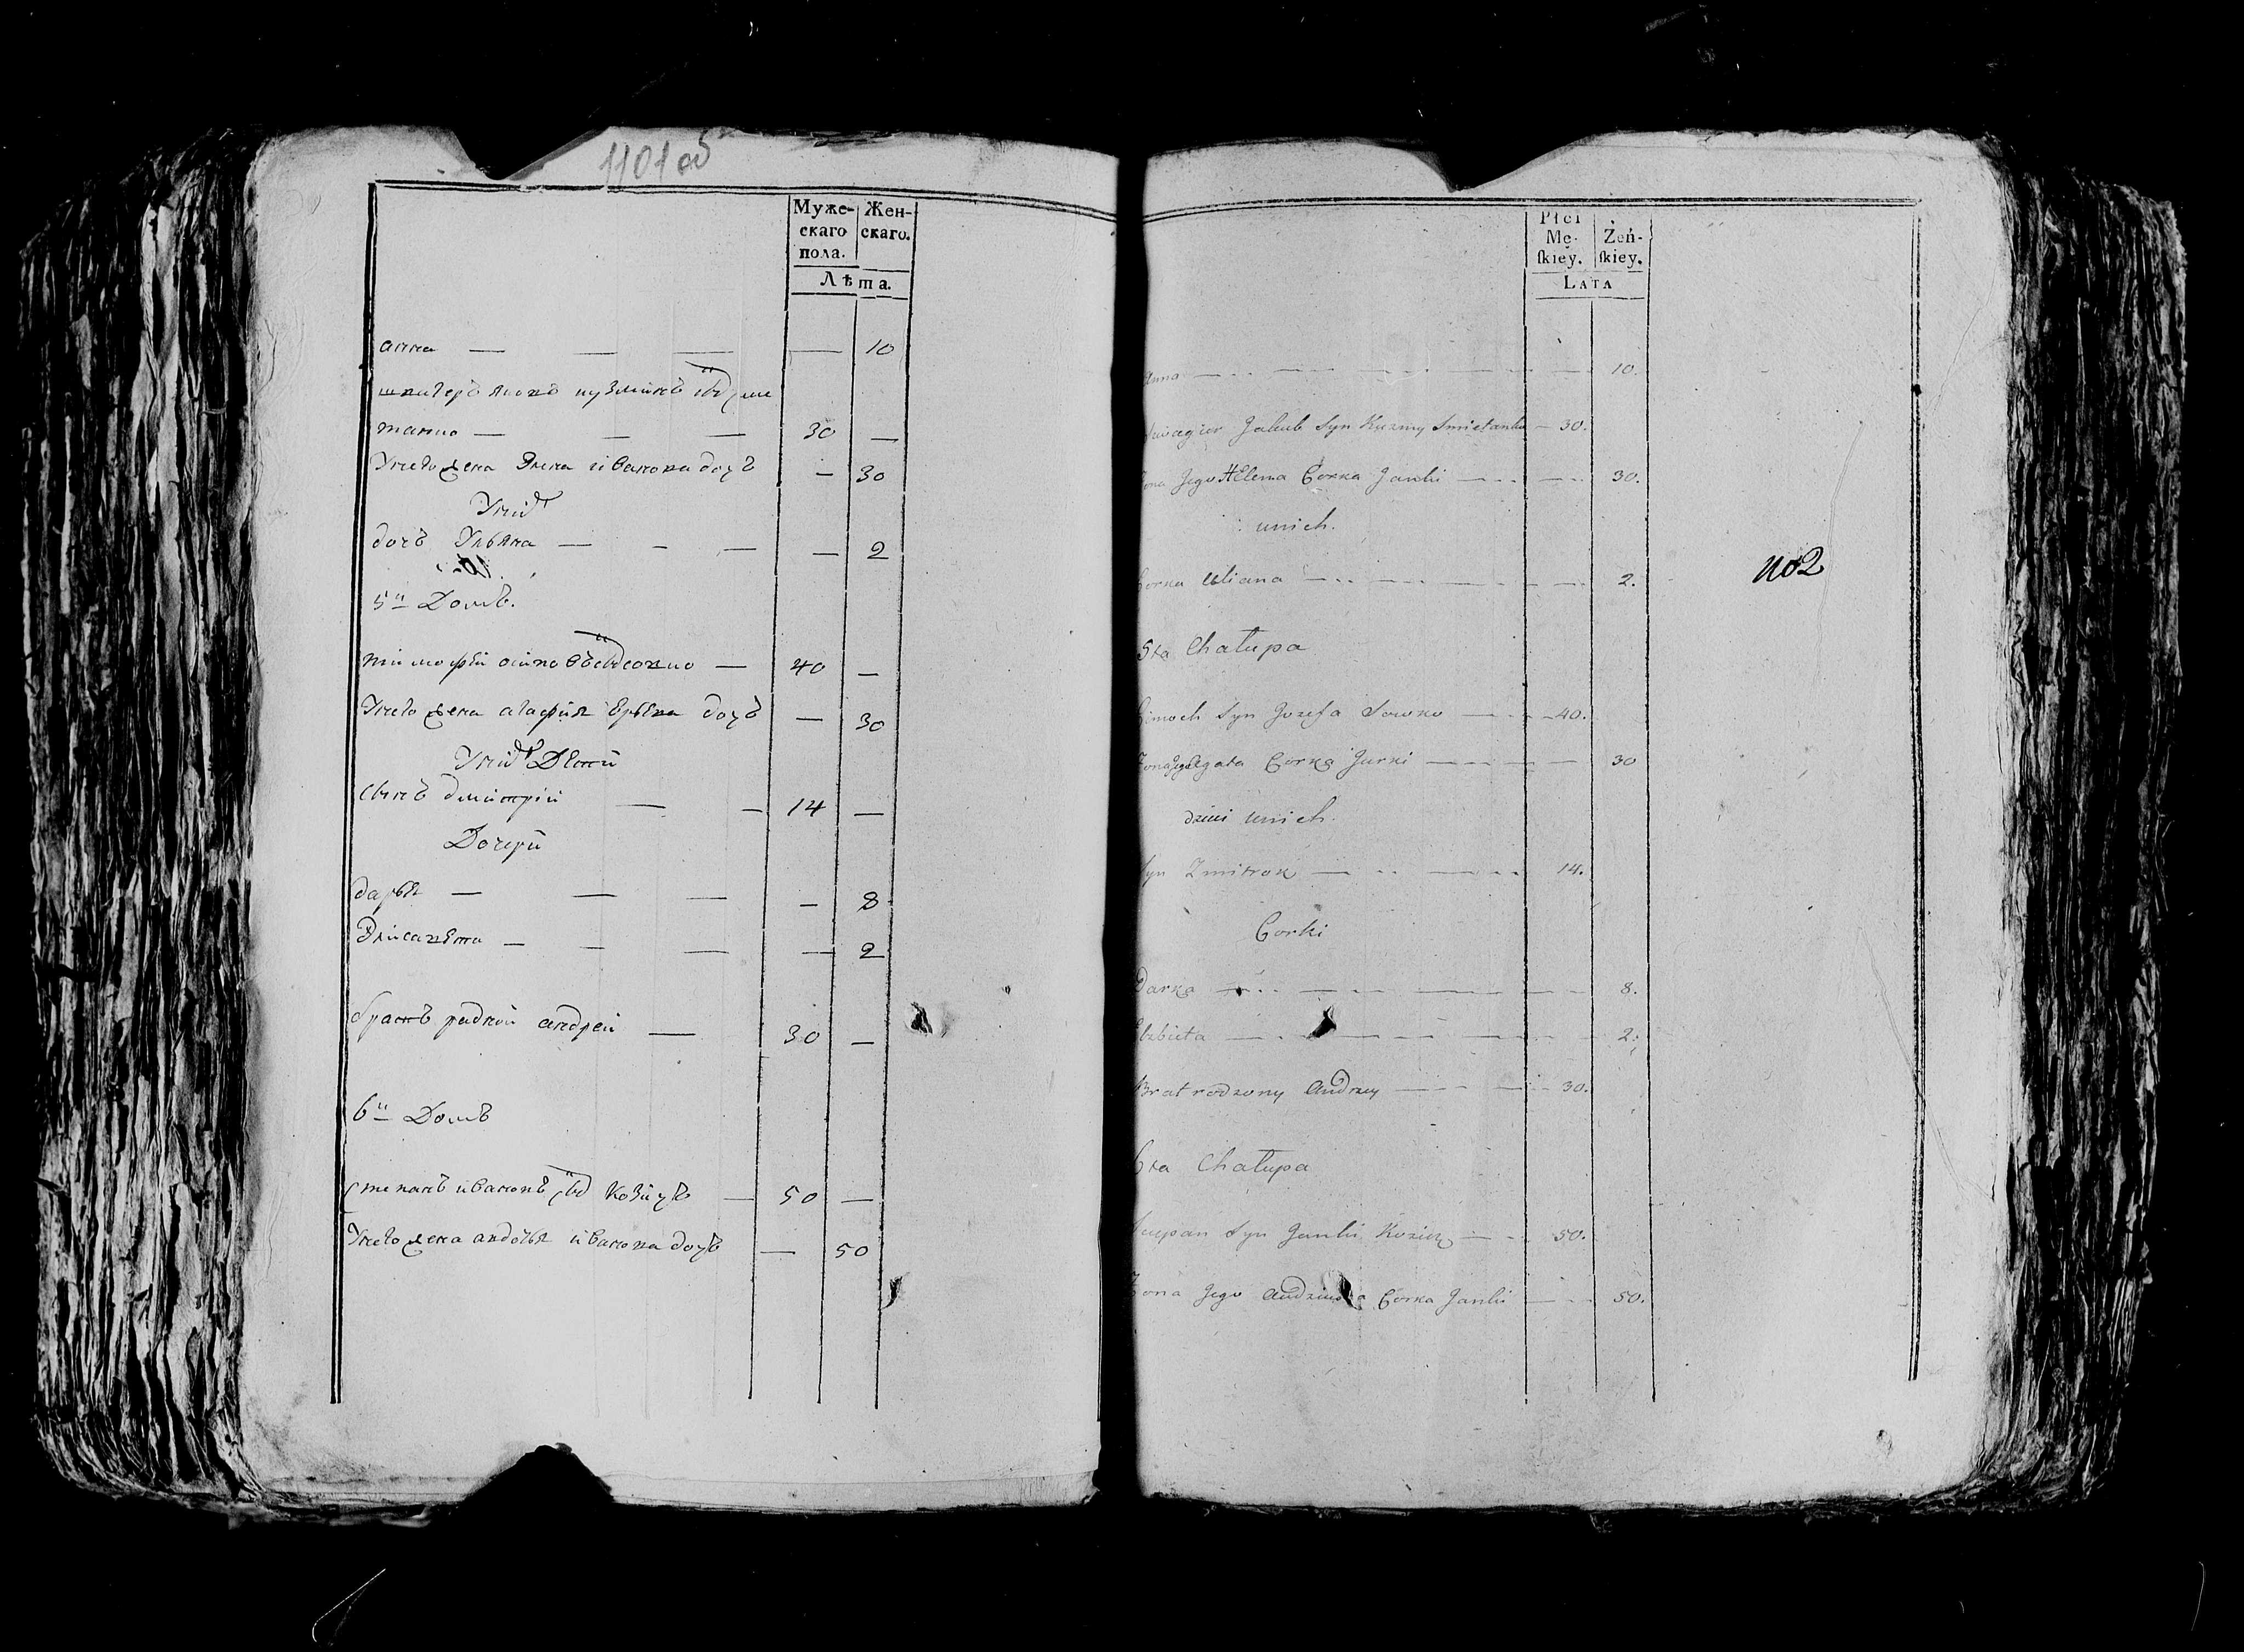 1101 об
Муже-
скаго
пола.
Жен-
скаго.
Лѣта.
анна — — — — 10
швагеръ яковъ кузминъ сынъ сме
танко — — — 30 —
У него жена Элена иванова дочь — 30
У нихъ
дочь Ульяна — — — — 2
5й Домъ.
тимофей осиповъ сынъ совко — 40 —
У него жена агафия юрьева дочь — 30
У нихъ Дети
сынъ дмитрий — — 14 —
Дочери
дарья — — — — 8
Элисавета — — — — 2
братъ родной андрей — 30 —
6й Домъ
степанъ ивановъ сынъ Козичъ — 50 —
У него жена авдотья иванова дочь — 50
Płci
Mę-
skiey.
Żeń-
skiey.
LATA
Anna — 10.
Szwagier Jakub Syn Kuzmy Smietanko — 30.
Żona Jego Helena Corka Janki — 30.
unich.
Corka Uliana — 2.
1102
5ta Chałupa
Cimoch Syn Jozefa Sowko — 40.
Żona Jego Agata Corka Jurki — 30
dzieci unich.
Syn Zmitrok — 14.
Corki
Darka — 8.
Elzbieta — 2.
Brat rodzony Andrzey — 30.
6ta Chałupa
Sciepan Syn Janki Kozicz — 50.
Żona Jego Corka Janki — 50.